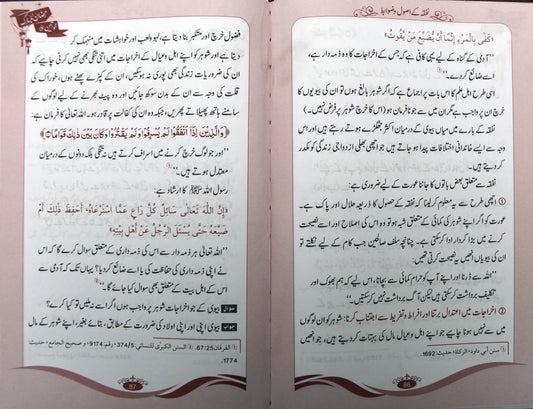 نفقہ کے اصول و ضوابط
«كَفَى بِالْمَرْءِ إِثْمًا أَنْ يُضَيِّعَ مَنْ يَقُوتُ»
’’آدمی کے گناہ کے لیے یہی کافی ہے کہ جس کے اخراجات کا وہ ذمہ دار ہے،
اسے ضائع کر دے۔‘‘
اسی طرح اہل علم کا اس بات پر اجماع ہے کہ اگر شوہر بالغ ہوں تو ان پر بیویوں کا
خرچ ان پر واجب ہے مگر ان میں سے جو نافرمان ہو (اس کا خرچ شوہر پر فرض نہیں۔)
نفقہ کے بارے میں میاں بیوی کے درمیان اکثر جھگڑے ہوتے رہتے ہیں اور
اس سے ایسے خاندانی اختلافات پیدا ہو جاتے ہیں جو اچھی بھلی ازدواجی زندگی کو مکدر
کر دیتے ہیں۔
نفقہ سے متعلق بعض باتوں کا جاننا عورت کے لیے ضروری ہے:
① اچھی طرح سے یہ معلوم کر لینا کہ نفقہ کے حصول کا ذریعہ حلال اور پاک ہے۔
عورت کو اگر اپنے شوہر کی کمائی کے متعلق شبہ ہو تو وہ اس کی اصلاح اور اسے نصیحت
کرنے میں بڑا کردار ادا کر سکتی ہے۔ چنانچہ سلف صالحین جب کام کے لیے نکلتے تو
ان کی بیویاں انھیں یہ نصیحت کرتی تھیں:
’’اللہ سے ڈرنا اور اپنے آپ کو حرام کمائی سے بچانا، اس لیے کہ ہم بھوک اور
تکلیف برداشت کر سکتی ہیں لیکن آگ برداشت نہیں کر سکتیں۔‘‘
② اخراجات میں اعتدال برتنا اور افراط و تفریط سے اجتناب کرنا: شوہر کو ان لوگوں
میں سے نہیں ہونا چاہیے جو اپنے اہل و عیال مال کی بہتات کر دیتے ہیں، جو انھیں
① سنن أبي داود، الزكاة، حديث: 1692.
86
فضول خرچ اور متکبر بنا دیتا ہے، لہو ولعب اور خواہشات میں منہمک کر
دیتا ہے اور شوہر کو اپنے اہل و عیال کے اخراجات میں اتنی تنگی بھی نہیں کرنی چاہیے کہ
ان کی ضروریات زندگی بھی پوری نہ ہو سکیں، ان کے کپڑے پھٹے ہوں، خوراک کی
قلت کی وجہ سے ان کے بدن سوکھ جائیں اور وہ پیٹ بھرنے کے لیے لوگوں کے
سامنے ہاتھ پھیلاتے پھریں، جبکہ وہ ان کی کفالت پر قادر ہو۔ اللہ تعالیٰ کا فرمان ہے:
﴿وَالَّذِينَ إِذَا أَنفَقُوا لَمْ يُسْرِفُوا وَلَمْ يَقْتُرُوا وَكَانَ بَيْنَ ذَٰلِكَ قَوَامًا﴾
’’اور جو لوگ خرچ کرنے میں اسراف کرتے ہیں نہ تنگی بلکہ دونوں کے درمیان
معتدل ہوتے ہیں۔‘‘①
رسول اللہ ﷺ کا ارشاد ہے:
«إِنَّ اللَّهَ تَعَالَى سَائِلٌ كُلَّ رَاعٍ عَمَّا اسْتَرْعَاهُ، أَحَفِظَ ذَلِكَ أَمْ
ضَيَّعَهُ حَتَّى يُسْأَلَ الرَّجُلُ عَنْ أَهْلِ بَيْتِهِ»
’’اللہ تعالیٰ ہر ذمہ دار سے اس کی ذمہ داری کے متعلق سوال کرے گا کہ اس
نے اپنی ذمہ داری کی حفاظت کی یا اسے ضائع کر دیا؟ یہاں تک کہ آدمی سے
اس کے اہل بیت کے متعلق بھی سوال کیا جائے گا۔‘‘②
سوال بیوی کے جو اخراجات شوہر پر واجب ہوں اگر اسے نہ ملیں تو کیا کرے؟
جواب بیوی کے لیے اپنی اور اپنی اولاد کی ضرورت کے مطابق، بتائے بغیر، اپنے شوہر کے مال
① الفرقان 67:25. ② السنن الكبرى للنسائي: 374/5، رقم: 9174، و صحيح الجامع، حديث:
1774.
87